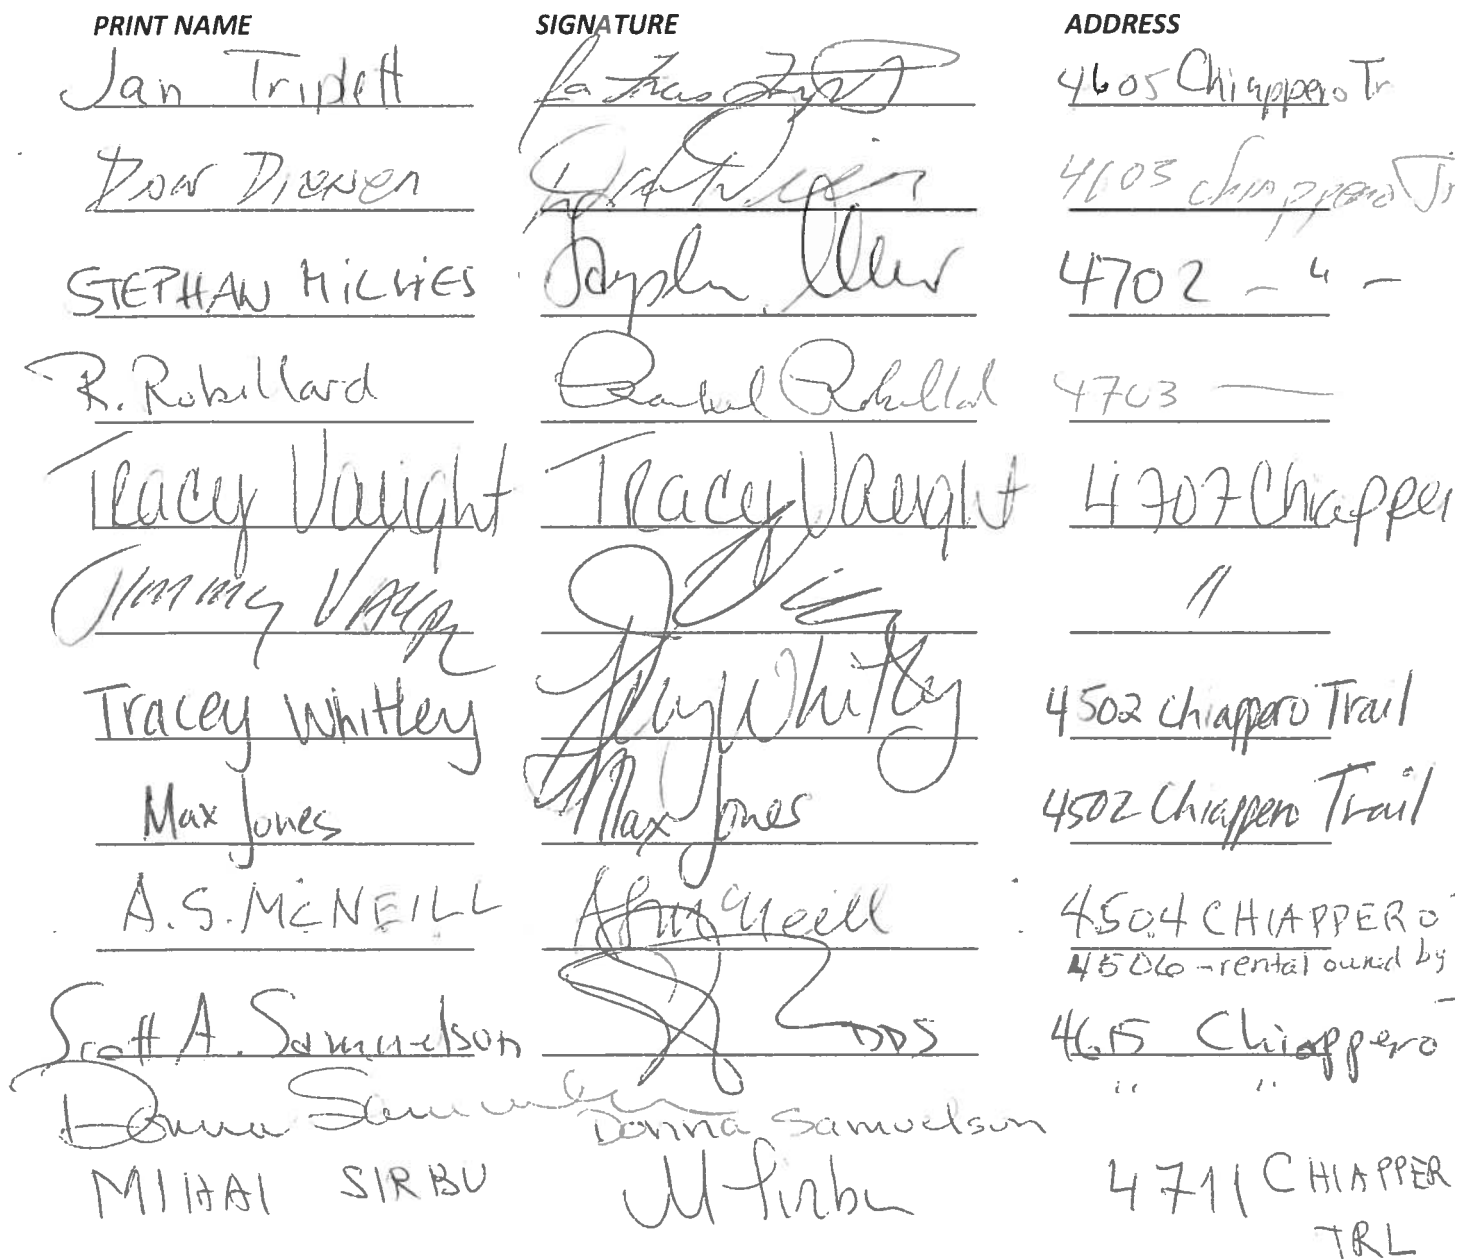 PRINT NAME SIGNATURE ADDRESS
Jan Triplett 4605 Chiappero Tr
Don Diener 4603 Chiappero Tr
STEPHAN MILVIES 4702 - " -
R. Robillard Robillard 4703 —
Tracy Vaught Tracy Vaught 4707 Chiapper
Jimmy "
Tracey Whitley Whitley 4502 Chiappero Trail
Max Jones Max Jones 4502 Chiappero Trail
A.S. McNEILL McNeill 4504 CHIAPPERO
4506 - rental owned by
Scott A. Samuelson DDS 4615 Chiappero
Donna Samuelson Donna Samuelson " "
MIHAI SIRBU M Sirbu 4711 CHIAPPER
TRL